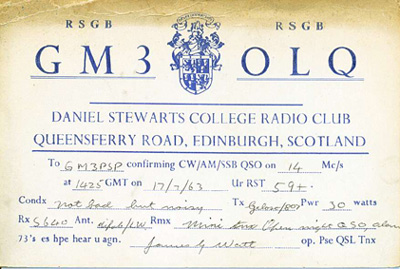 RSGB RSGB
GM3 OLQ
DANIEL STEWARTS COLLEGE RADIO CLUB
QUEENSFERRY ROAD, EDINBURGH, SCOTLAND
To GM3PSP confirming CW/AM/SSB QSO on 14 Mc/s
at 1425 GMT on 17/7/63 Ur RST 59+.
Condx not bad but noisy Tx Geloso/807 Pwr 30 watts
Rx S640 Ant. dipole Rmx Mini QSO,
73's es hpe hear u agn. James Watt op. Pse QSL Tnx